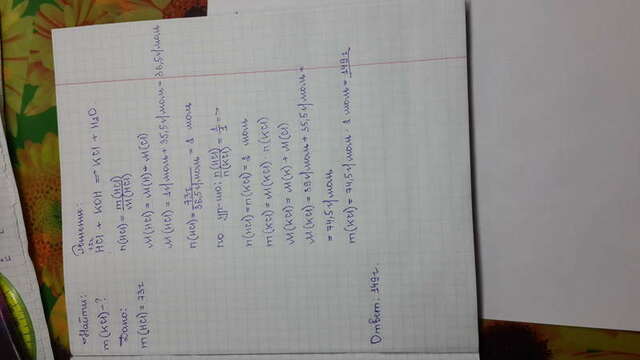 Найти:
m(KCl)-?
Дано:
m(HCl)=73г
Решение:
HCl + KOH = KCl + H2O
n(HCl)= m(HCl)/M(HCl)
M(HCl)=M(H)+M(Cl)
M(HCl)=1г/моль+35,5г/моль=36,5г/моль
n(HCl)= 73г/36,5г/моль =2 моль
по ур-ию: n(HCl)/n(KCl) = 1/1 =>
n(HCl)=n(KCl)=2 моль
m(KCl)=M(KCl)·n(KCl)
M(KCl)=M(K)+M(Cl)
M(KCl)=39г/моль+35,5г/моль=
=74,5г/моль
m(KCl)=74,5г/моль·2 моль=149г
Ответ: 149г.